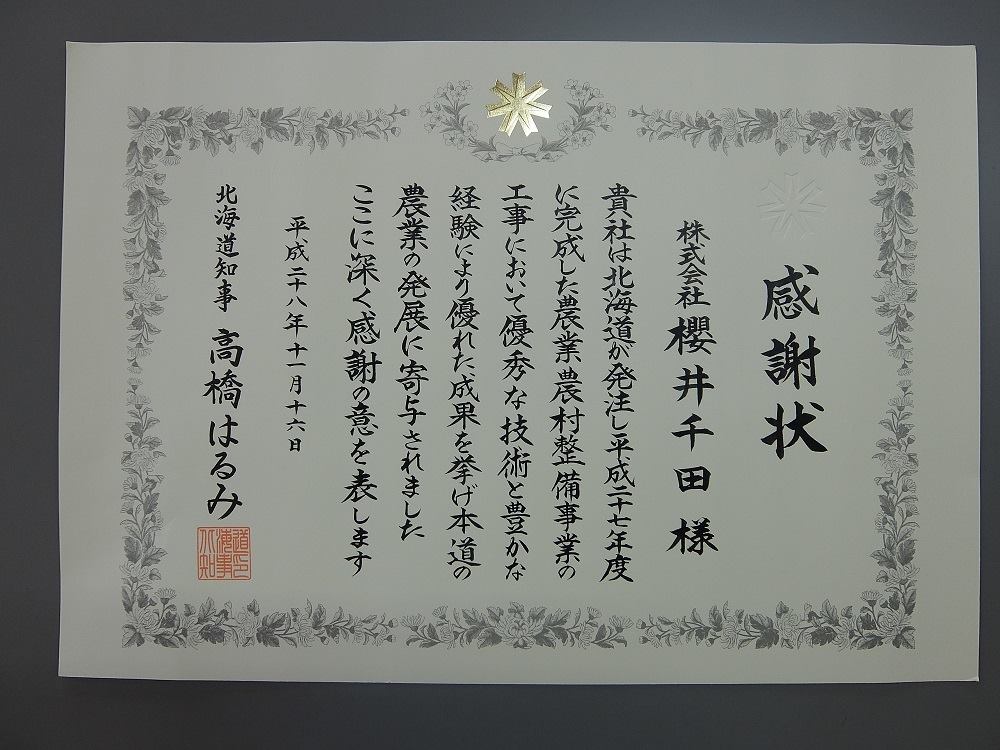 感謝状
株式会社 櫻井千田 様
貴社は北海道が発注し平成二十七年度
に完成した農業農村整備事業の
工事において優秀な技術と豊かな
経験により優れた成果を挙げ本道の
農業の発展に寄与されました
ここに深く感謝の意を表します
平成二十八年十一月十六日
北海道知事 高橋はるみ